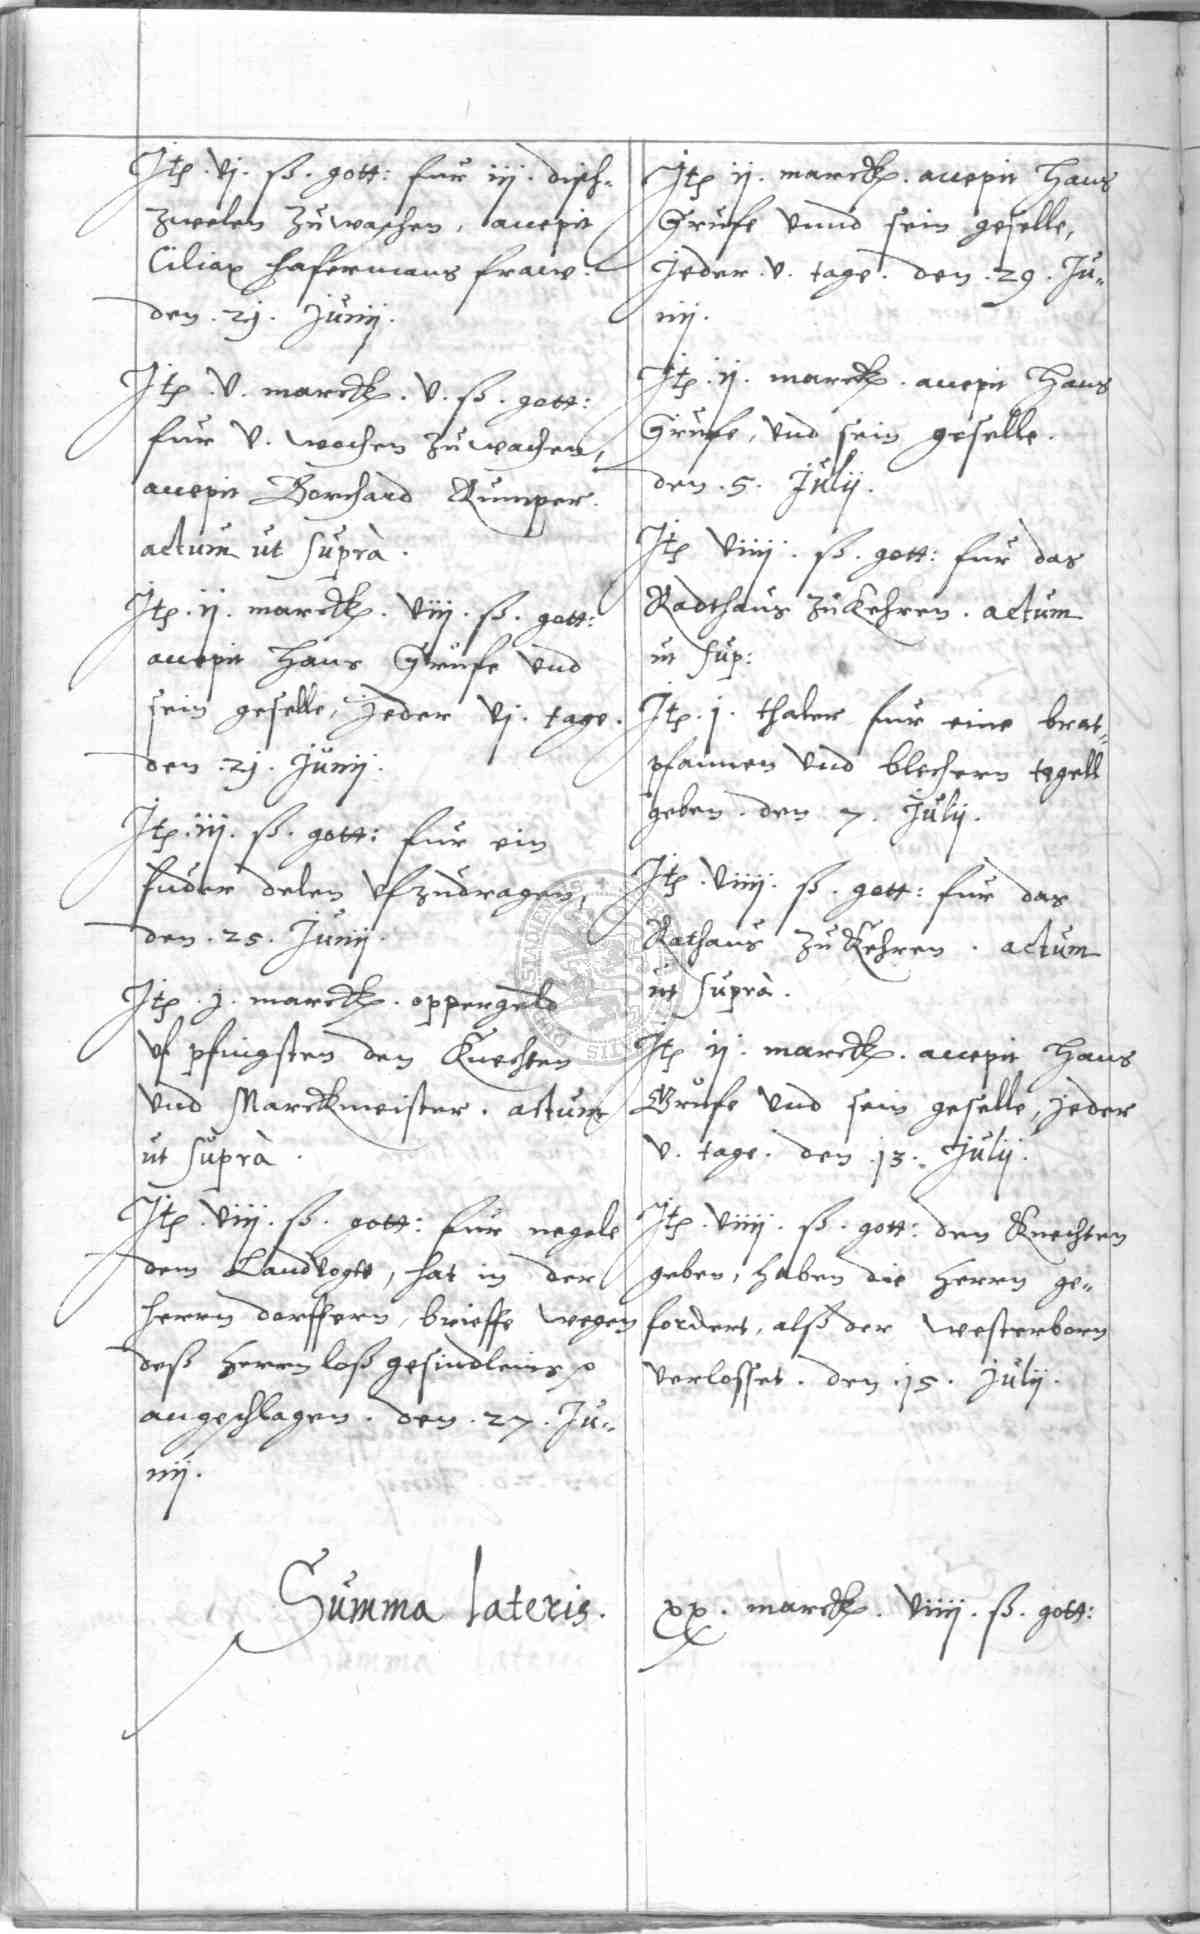 Itē . vj . ß . gott: fur iij . disch-
zwelen zuwaschen, accepit
Ciliax Hafermans frawe.
den . 21 . Junij .
Itē . v . marck . v . ß . gott:
fur v . wochen zuwachen,
accepit Borchard Rumper.
actum ut suprà .
Itē . ij . marck . viij . ß . gott:
accepit Hans Grufe vnd
sein geselle, Jeder vj . tage .
den . 21 . Junij .
Itē . iij . ß . gott: fur ein
fuder delen vfzudragen,
den . 25 . Junij .
Itē . j . marck . oppergeld
vf pfingsten den Knechten
vnd Marckmeister . actum
ut suprà .
Itē . viij . ß . gott: fur negele
dem Landvogte, hat in der
herrn dorffern, brieffe wegen
deß Herrnloß gesindleins
angeschlagen . den . 27 . Ju-
nij .
Itē ij . marck . accepit Hans
Grufe vnnd sein geselle,
Jeder . v . tage . den . 29 . Ju-
nij .
Itē . ij . marck . accepit Hans
Grufe, vnd sein geselle .
den . 5 . Julij .
Itē viiij . ß . gott: fur das
Radthaus zukehren . actum
ut sup:
Itē . j . thaler fur eine brat-
pfannen vnd blechern tegell
geben . den 7 . Julij .
Itē . viiij . ß . gott: fur das
Rathaus zu Kehren . actum
ut suprà .
Itē ij . marck . accepit Hans
Grufe vnd sein geselle, jeder
v . tage . den . 13 . Julij .
Itē . viiij . ß . gott: den Knechten
geben, haben die Herrn ge-
fordert, alß der Westerborn
verlosset . den . 15 . Julij .
Summa lateris . xx . marck . viiij . ß . gott: